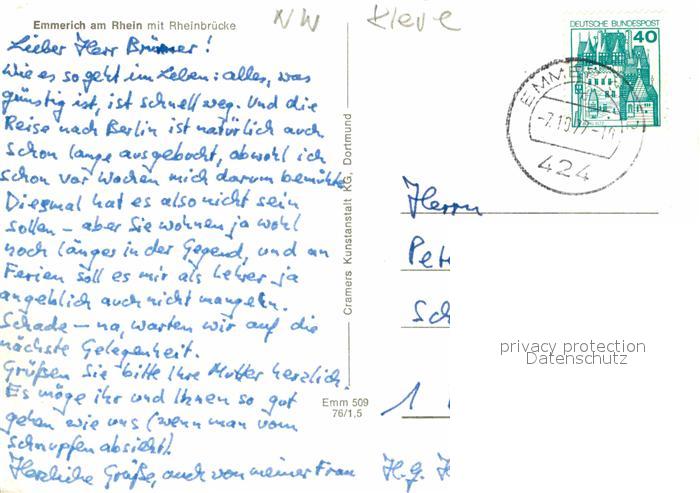 Emmerich am Rhein mit Rheinbrücke
NW Kleve
DEUTSCHE BUNDESPOST
40
EMME
-7.10.77-
424
Lieber Herr
Wie es so geht im Leben: alles, was
günstig ist, ist schnell weg. Und die
Reise nach Berlin ist natürlich auch
schon lange ausgebucht, obwohl ich
schon vor Wochen mich darum bemühte
Diesmal hat es also nicht sein
sollen – aber Sie wohnen ja wohl
noch länger in der Gegend, und an
Ferien soll es mir als Lehrer ja
angeblich auch nicht mangeln.
Schade – na, warten wir auf die
nächste Gelegenheit.
Grüßen Sie bitte Ihre Mutter herzlich.
Es möge ihr und Ihnen so gut
gehen wie uns (wenn man vom
Schnupfen absieht).
Herzliche Grüße, auch von meiner Frau H.G. H
Cramers Kunstanstalt KG, Dortmund
Emm 509
76/1,5
Herrn
Pet
Sch
1
privacy protection
Datenschutz